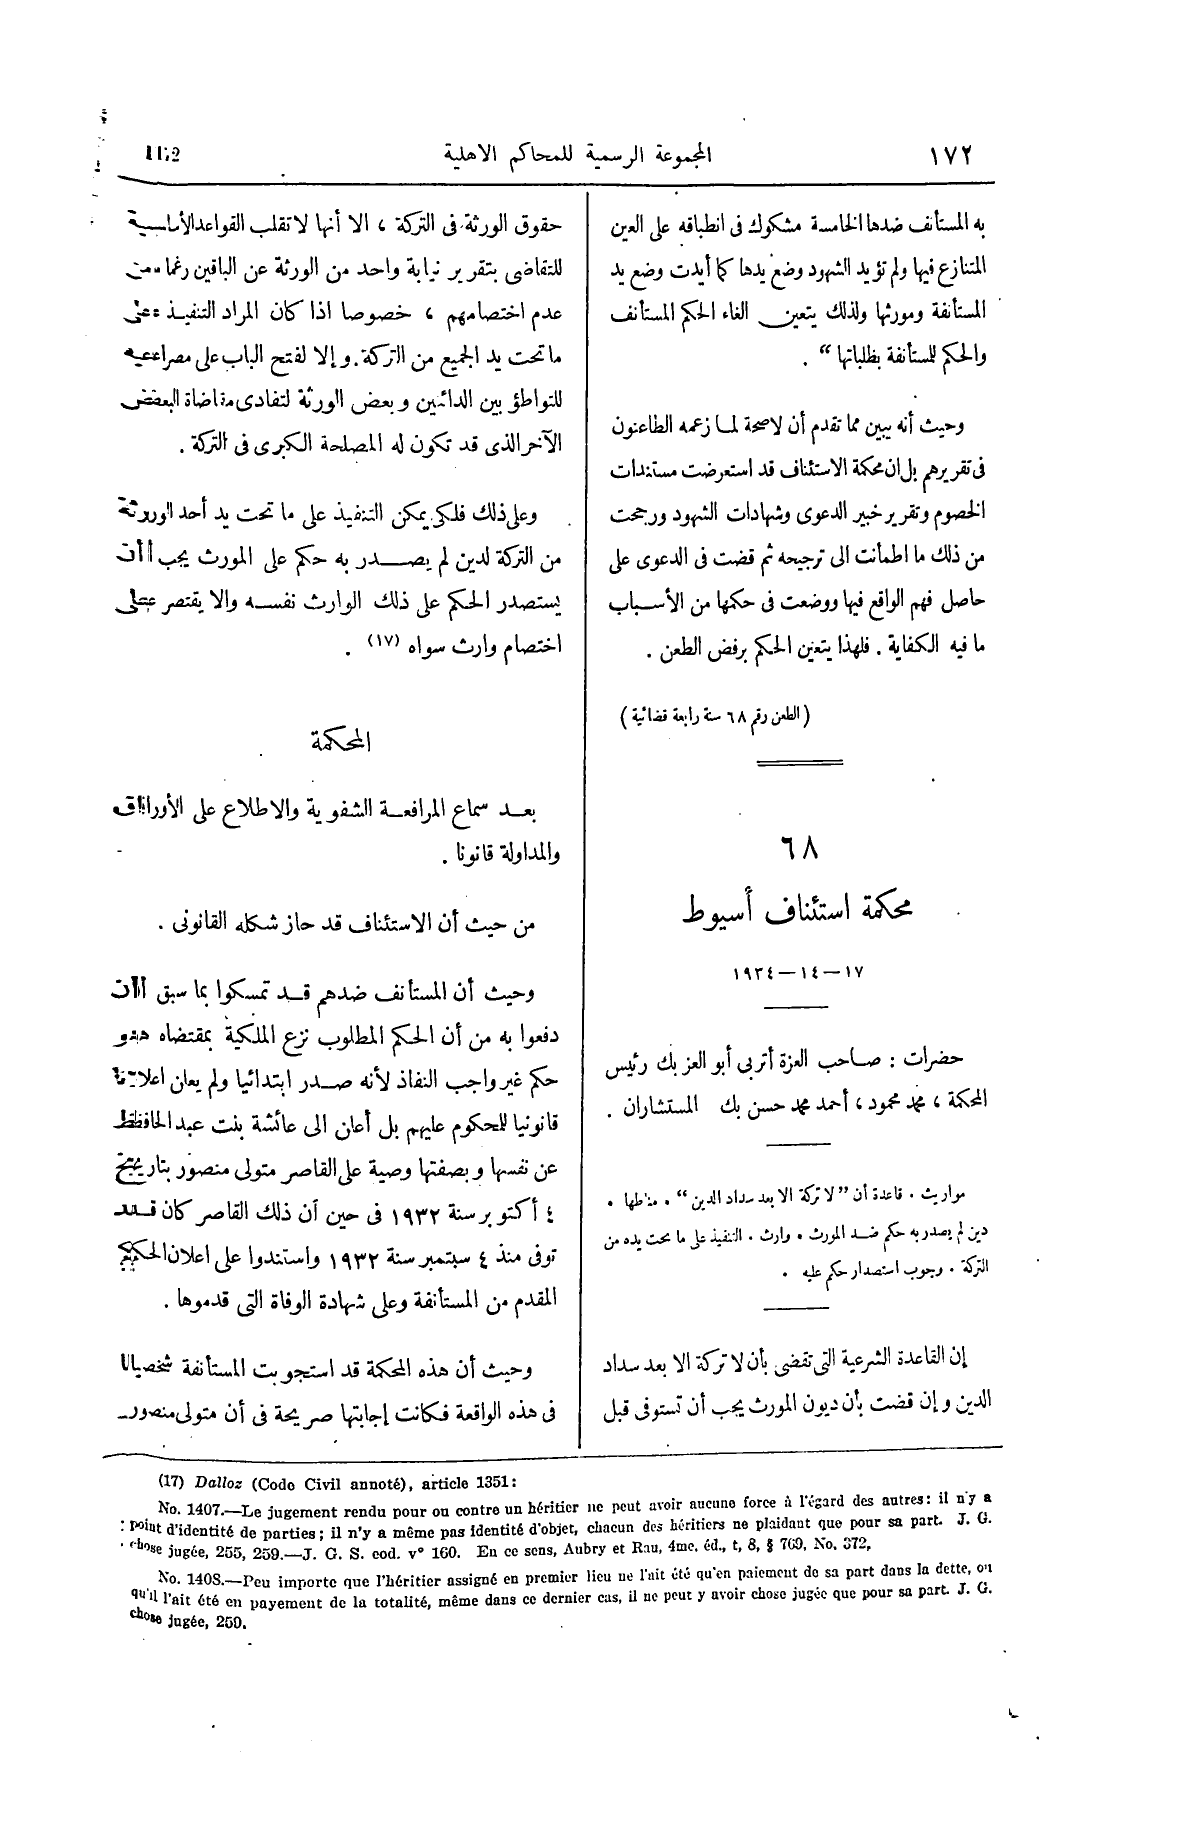 ١٧٢
المجموعة الرسمية للمحاكم الاهلية
به المستأنف ضدها الخامسة مشكوك فى انطباقه على العين
المتنازع فيها ولم تؤيد الشهود وضع يدها كما أيدت وضع يد
المستأنفة ومورثها ولذلك يتعين الغاء الحكم المستأنف
والحكم للمستأنفة بطلباتها “ .
وحيث أنه يبين مما تقدم أن لاصحة لما زعمه الطاعنون
فى تقريرهم بل ان محكمة الاستئناف قد استعرضت مستندات
الخصوم وتقرير خبير الدعوى وشهادات الشهود ورجحت
من ذلك ما اطمأنت الى ترجيحه ثم قضت فى الدعوى على
حاصل فهم الواقع فيها ووضعت فى حكمها من الأسباب
ما فيه الكفاية . فلهذا يتعين الحكم برفض الطعن .
( الطعن رقم ٦٨ سنة رابعة قضائية )
٦٨
محكمة استئناف أسيوط
١٧ — ١٤ — ١٩٣٤
حضرات : صاحب العزة أتربى أبو العز بك رئيس
المحكمة ، محمد محمود ، أحمد محمد حسن بك المستشاران .
مواريث . قاعدة أن ”لا تركة الا بعد سداد الدين“ . مناطها .
دين لم يصدر به حكم ضد المورث . وارث . التنفيذ على ما تحت يده من
التركة . وجوب استصدار حكم عليه .
إن القاعدة الشرعية التى تقضى بأن لا تركة الا بعد سداد
الدين وإن قضت بأن ديون المورث يجب أن تستوفى قبل
حقوق الورثة فى التركة ، الا أنها لا تقلب القواعد الأساسية
للتقاضى بتقرير نيابة واحد من الورثة عن الباقين رغما من
عدم اختصامهم ، خصوصا اذا كان المراد التنفيذ على
ما تحت يد الجميع من التركة. وإلا لفتح الباب على مصراعيه
للتواطؤ بين الدائنين وبعض الورثة لتفادى مقاضاة البعض
الآخر الذى قد تكون له المصلحة الكبرى فى التركة .
وعلى ذلك فلكى يمكن التنفيذ على ما تحت يد أحد الورثة
من التركة لدين لم يصدر به حكم على المورث يجب أن
يستصدر الحكم على ذلك الوارث نفسه والا يقتصر على
اختصام وارث سواه (١٧) .
المحكمة
بعد سماع المرافعة الشفوية والاطلاع على الأوراق
والمداولة قانونا .
من حيث أن الاستئناف قد حاز شكله القانونى .
وحيث أن المستأنف ضدهم قد تمسكوا بما سبق أن
دفعوا به من أن الحكم المطلوب نزع الملكية بمقتضاه هو
حكم غير واجب النفاذ لأنه صدر ابتدائيا ولم يعلن اعلانا
قانونيا للمحكوم عليهم بل أعلن الى عائشة بنت عبد الحافظ
عن نفسها وبصفتها وصية على القاصر متولى منصور بتاريخ
٤ أكتوبر سنة ١٩٣٢ فى حين أن ذلك القاصر كان قد
توفى منذ ٤ سبتمبر سنة ١٩٣٢ واستندوا على اعلان الحكم
المقدم من المستأنفة وعلى شهادة الوفاة التى قدموها .
وحيث أن هذه المحكمة قد استجوبت المستأنفة شخصيا
فى هذه الواقعة فكانت إجابتها صريحة فى أن متولى منصور
(17) Dalloz (Code Civil annoté), article 1351:
No. 1407.—Le jugement rendu pour ou contre un héritier ne peut avoir aucune force à l'égard des autres: il n'y a
point d'identité de parties; il n'y a même pas identité d'objet, chacun des héritiers ne plaidant que pour sa part. J. G.
chose jugée, 255, 259.—J. G. S. eod. v° 160. En ce sens, Aubry et Rau, 4me. éd., t, 8, § 769, No. 372,
No. 1408.—Peu importe que l'héritier assigné en premier lieu ne l'ait été qu'en paiement de sa part dans la dette, ou
qu'il l'ait été en payement de la totalité, même dans ce dernier cas, il ne peut y avoir chose jugée que pour sa part. J. G.
chose jugée, 259.